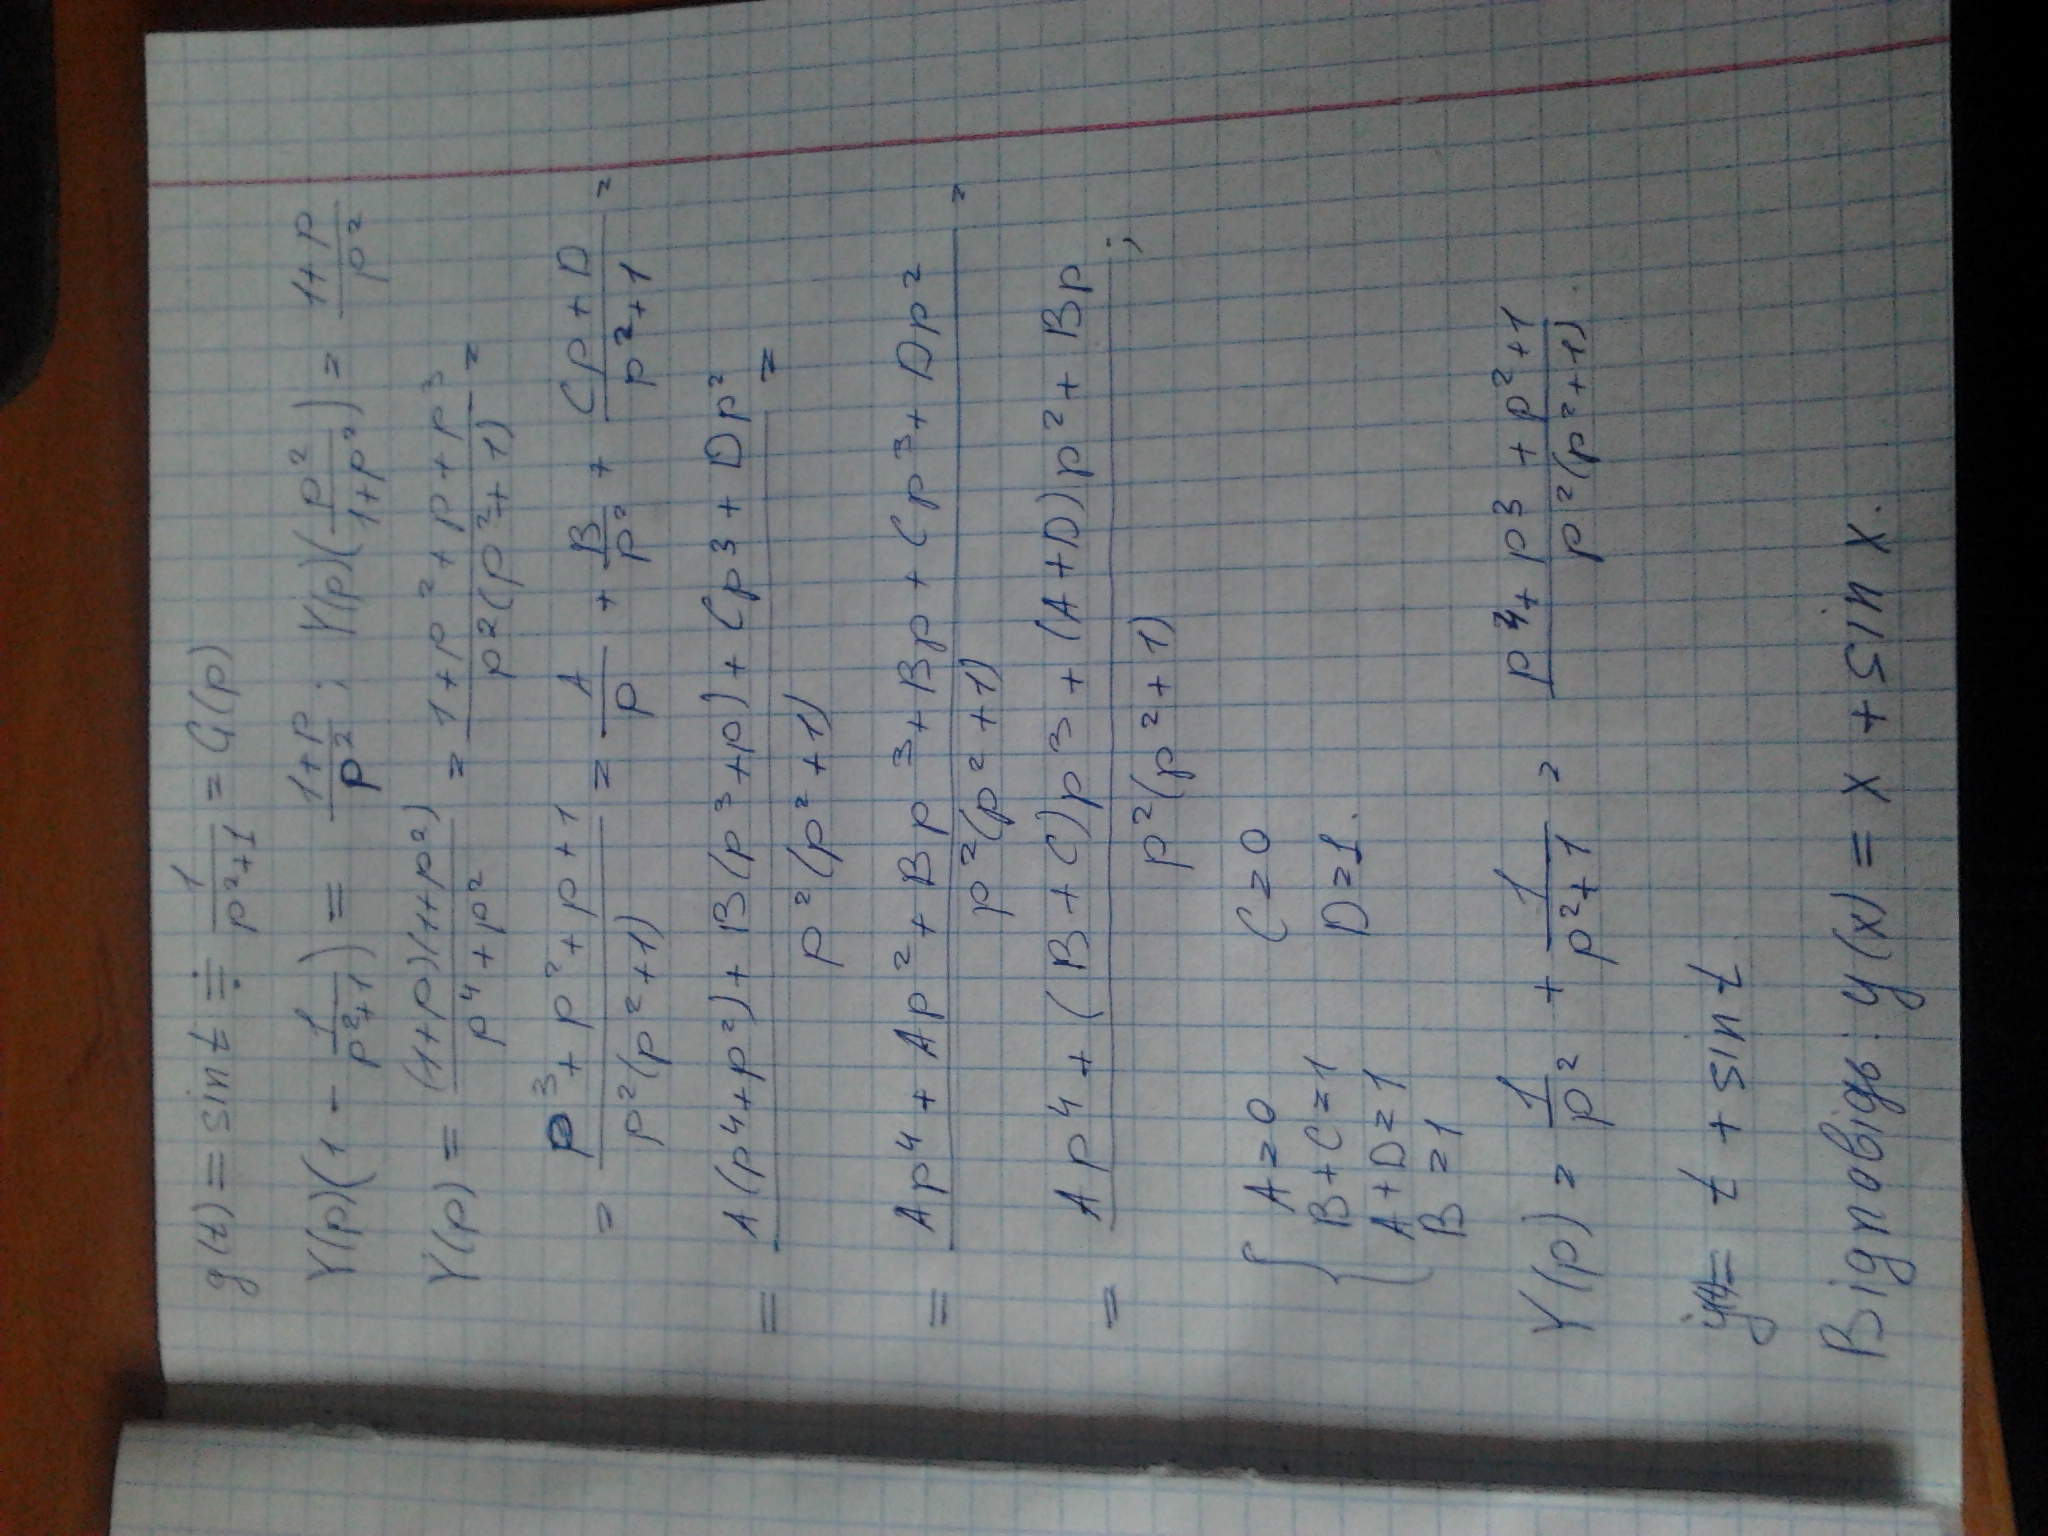 g(t) = sin t ≑ 1/(p²+1) = G(p)
Y(p)(1 - 1/(p²+1)) = (1+p)/p² ; Y(p)(p²/(1+p²)) = (1+p)/p²
Y(p) = ((1+p)(1+p²))/(p⁴+p²) = (1+p²+p+p³)/(p²(p²+1)) =
= (p³+p²+p+1)/(p²(p²+1)) = A/p + B/p² + (Cp+D)/(p²+1) =
= (A(p⁴+p²) + B(p³+p) + Cp³ + Dp²)/(p²(p²+1)) =
= (Ap⁴ + Ap² + Bp³ + Bp + Cp³ + Dp²)/(p²(p²+1)) =
= (Ap⁴ + (B+C)p³ + (A+D)p² + Bp)/(p²(p²+1)) ;
{ A = 0 C = 0
B + C = 1
D = 1.
A + D = 1
B = 1
Y(p) = 1/p² + 1/(p²+1) = (p⁴ + p³ + p² + 1)/(p²(p²+1)).
y(t) = t + sin t
Відповідь: y(x) = x + sin x.